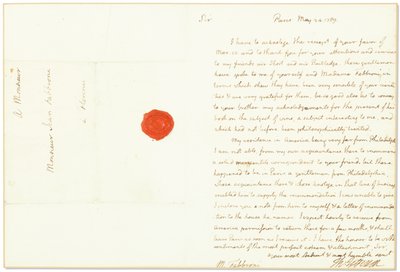 Sir
Paris May 24. 1789.
I have to acknolege the receipt of your favor of
and to thank you for your attentions and services
to my friends mr Short and mr Rutledge. these gentlemen
have spoke to me of yourself and Madame Fabbroni in
terms which shew they have been very sensible of your worth
be so good also as to convey
to your brother my acknolegements for the present of his
book on the subject of wine, a subject interesting to me, and
which had not before been philosophically treated.
My residence in America being very far from Philadelphia
I am not able from my own acquaintance there to recommend
a correspondent to your friend. but there
happened to be in Paris a gentleman from Philadelphia
whose acquaintance there & whose
enabled him to supply the
I inclose you a note from him to myself & a letter of recommenda-
tion to the house he names. I expect hourly to receive from
America permission to return there for a few months & shall
have Paris as soon as I receive it. I have the honour to be with
sentiments of the most perfect esteem & attachment Sir
your most obedient & most humble servt
M. Fabbroni
A Monsieur
Monsieur Fabbroni
à Florence